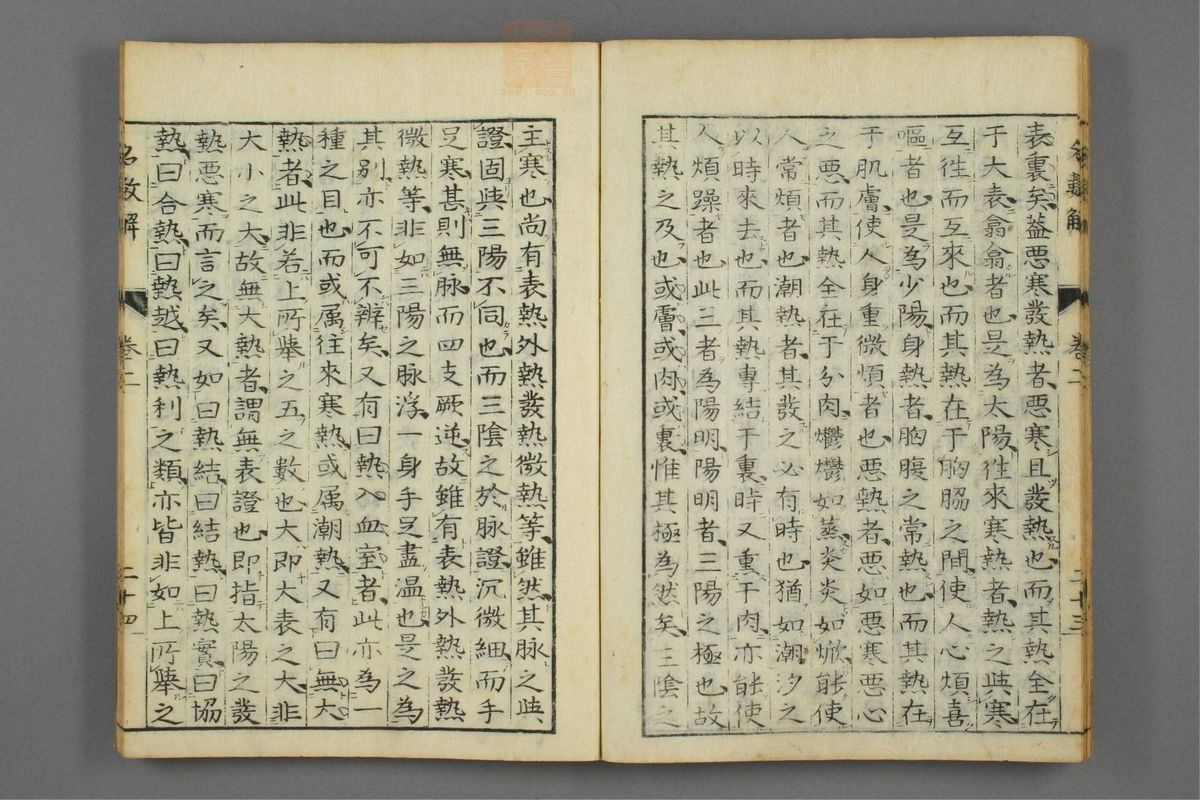 表裏矣蓋惡寒發熱者惡寒且發熱也而其熱全在
于大表翕翕者也是為太陽往來寒熱者熱之與寒
互往而互來也而其熱在于胸脇之間使人心煩喜
嘔者也是為少陽身熱者胸腹之常熱也而其熱在
于肌膚使人身重微煩者也惡熱者惡如惡寒惡心
之惡而其熱全在于分肉爩爩如蒸炎炎如焮能使
人常煩者也潮熱者其發之必有時也猶如潮汐之
以時來去也而其熱專結于裏時又熏于肉亦能使
人煩躁者也此三者為陽明陽明者三陽之極也故
其熱之及也或膚或肉或裏惟其極為然矣三陰之
主寒也尚有表熱外熱發熱微熱等雖然其脉之與
證固與三陽不同也而三陰之於脉證沉微細而手
足寒甚則無脉而四支厥逆故雖有表熱外熱發熱
微熱等非如三陽之脉浮一身手足盡温也是之為
其別亦不可不辨矣又有曰熱入血室者此亦為一
種之目也而或属往來寒熱或属潮熱又有曰無大
熱者此非若上所舉之五之數也大即大表之大非
大小之大故無大熱者謂無表證也即指太陽之發
熱惡寒而言之矣又如曰熱結曰結熱曰熱實曰協
熱曰合熱曰熱越曰熱利之類亦皆非如上所舉之
名數解 卷二 二十三
名數解 卷二 二十四